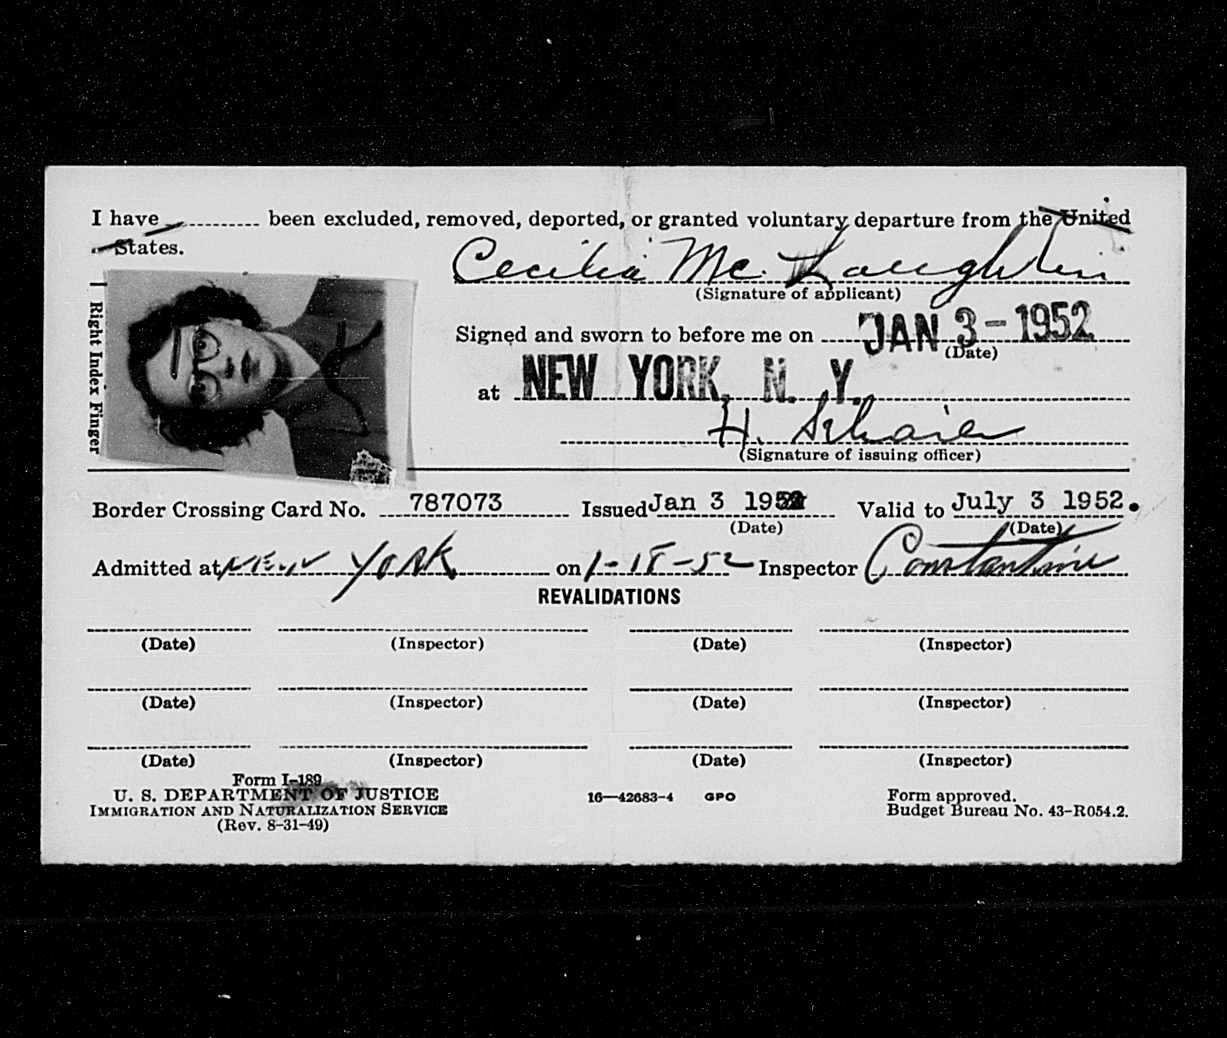 I have ............ been excluded, removed, deported, or granted voluntary departure from the United
States.
Cecilia Mc Laughlin
(Signature of applicant)
Right Index Finger
Signed and sworn to before me on JAN 3 - 1952
(Date)
at NEW YORK, N. Y.
H.
(Signature of issuing officer)
Border Crossing Card No. 787073 Issued Jan 3 1952 Valid to July 3 1952.
(Date) (Date)
Admitted at NEW YORK on 1-18-52 Inspector Constantine
REVALIDATIONS
(Date) (Inspector) (Date) (Inspector)
(Date) (Inspector) (Date) (Inspector)
(Date) (Inspector) (Date) (Inspector)
Form I-189
U. S. DEPARTMENT OF JUSTICE 16—42683-4 GPO Form approved.
IMMIGRATION AND NATURALIZATION SERVICE Budget Bureau No. 43-R054.2.
(Rev. 8-31-49)